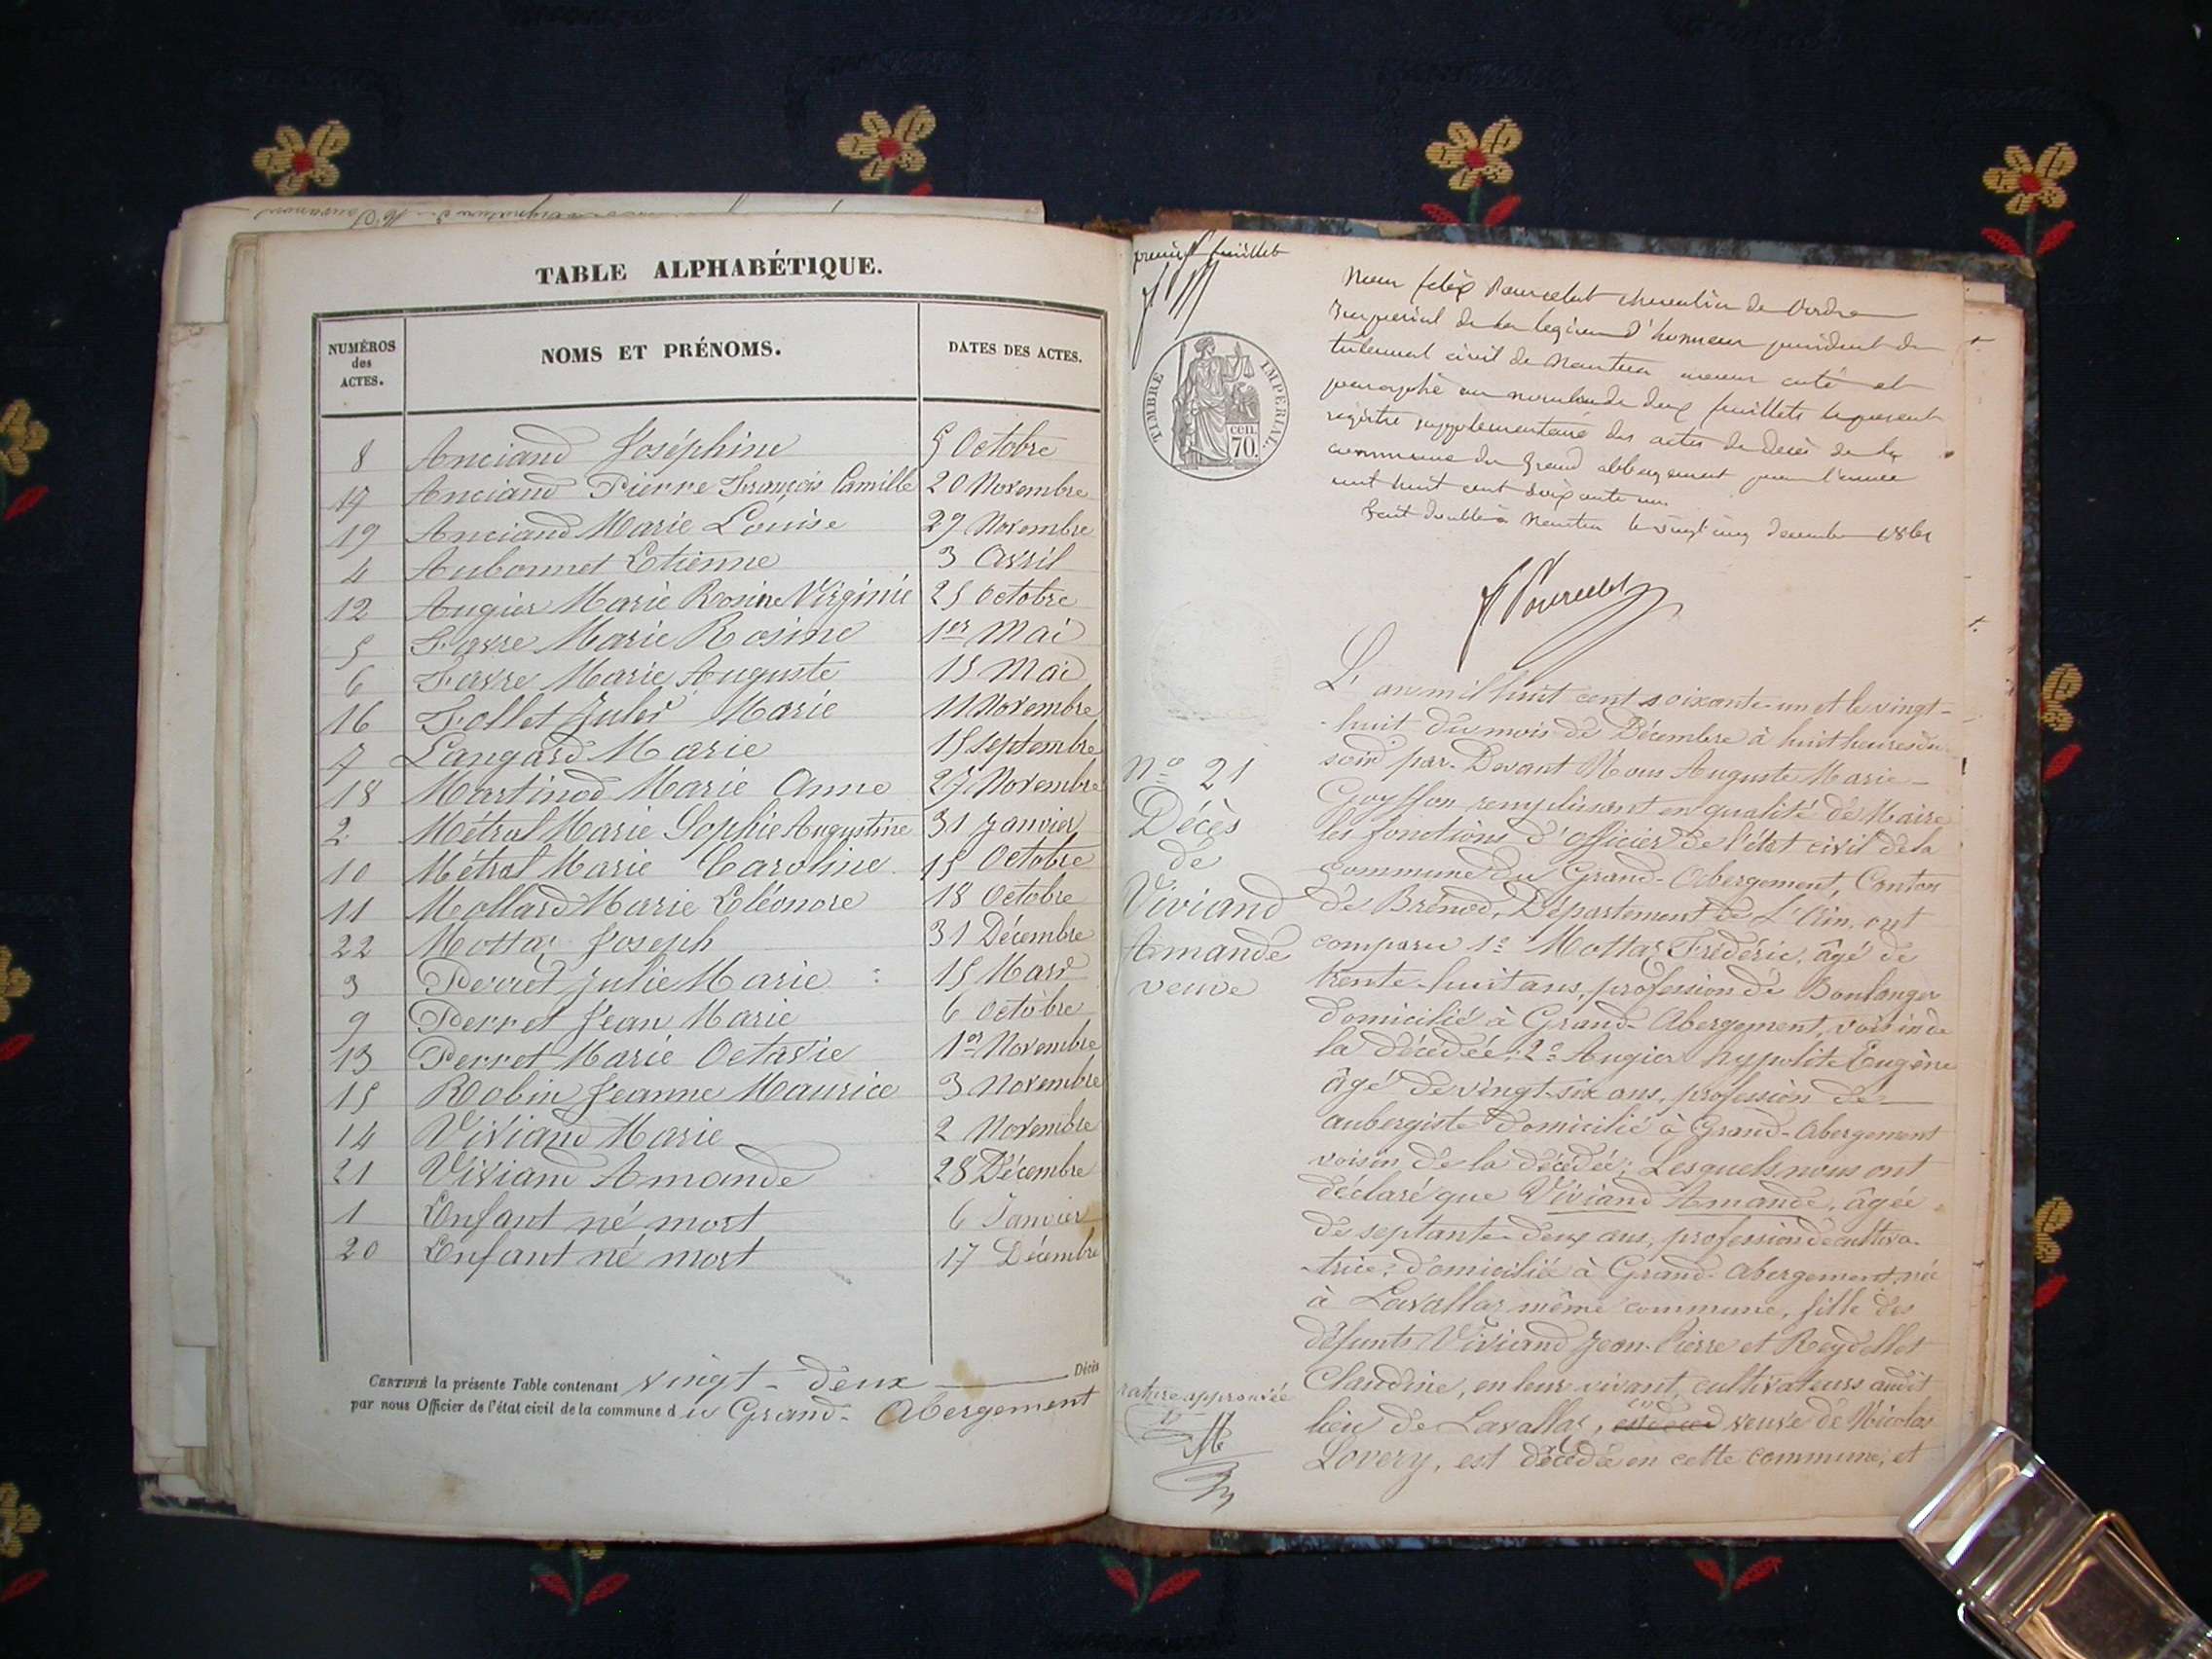 TABLE ALPHABÉTIQUE.
NUMÉROS des ACTES. NOMS ET PRÉNOMS. DATES DES ACTES.
8 Anciand Joséphine 5 Octobre
17 Anciand Pierre François Camille 20 Novembre
19 Anciand Marie Louise 29 Novembre
4 Aubonnet Etienne 3 Avril
12 Augier Marie Rosine Virginie 25 Octobre
5 Favre Marie Rosine 1er Mai
6 Favre Marie Auguste 15 Mai
16 Follet Jules Marie 11 Novembre
7 Langard Marie 15 Septembre
18 Martinod Marie Anne 27 Novembre
2 Métral Marie Sophie Augustine 31 Janvier
10 Métral Marie Caroline 15 Octobre
11 Mollard Marie Eléonore 18 Octobre
22 Mottaz Joseph 31 Décembre
3 Perret Julie Marie 15 Mars
9 Perret Jean Marie 6 Octobre
13 Perret Marie Octavie 1er Novembre
15 Robin Jeanne Maurice 3 Novembre
14 Viviand Marie 2 Novembre
21 Viviand Amande 28 Décembre
1 Enfant né mort 6 Janvier
20 Enfant né mort 17 Décembre
CERTIFIÉ la présente Table contenant vingt-deux Décès
par nous Officier de l'état civil de la commune du Grand-Abergement
premier feuillet
TIMBRE IMPÉRIAL. 70. cen.
Nous félix Pourcelot chevalier de l'ordre
Impérial de la légion d'honneur président du
tribunal civil de Nantua avons coté et
paraphé au nombre de deux feuillets le présent
registre supplémentaire des actes de décès de la
commune du Grand abbergement pour l'année
mil huit cent soixante un
Fait double à Nantua le vingt cinq décembre 1861
F Pourcelot
L'an mil huit cent soixante-un et le vingt-
huit du mois de Décembre à huit heures du
soir par-Devant Nous Auguste Marie
Goyffon remplissant en qualité de Maire
les fonctions d'officier de l'état civil de la
commune du Grand-Abergement, Canton
de Brénod, Département de L'Ain, ont
comparu 1° Mottaz Frédéric, âgé de
trente-huit ans, profession de Boulanger
domicilié à Grand-Abergement, voisin de
la décédée; 2° Augier hyppolite Eugène
âgé de vingt-six ans, profession de
aubergiste domicilié à Grand-Abergement
voisin de la décédée; Lesquels nous ont
déclaré que Viviand Amande, âgée
de septante-deux ans, profession de cultiva-
trice, domiciliée à Grand-Abergement, née
à Lavallaz même commune, fille des
défunts Viviand Jean-Pierre et Reydellet
Claudine, en leur vivant cultivateurs audit
lieu de Lavallaz, veuve de Nicolas
Lovery, est décédée en cette commune, et
N° 21
Décès
de
Viviand
Amande
veuve
rature approuvée